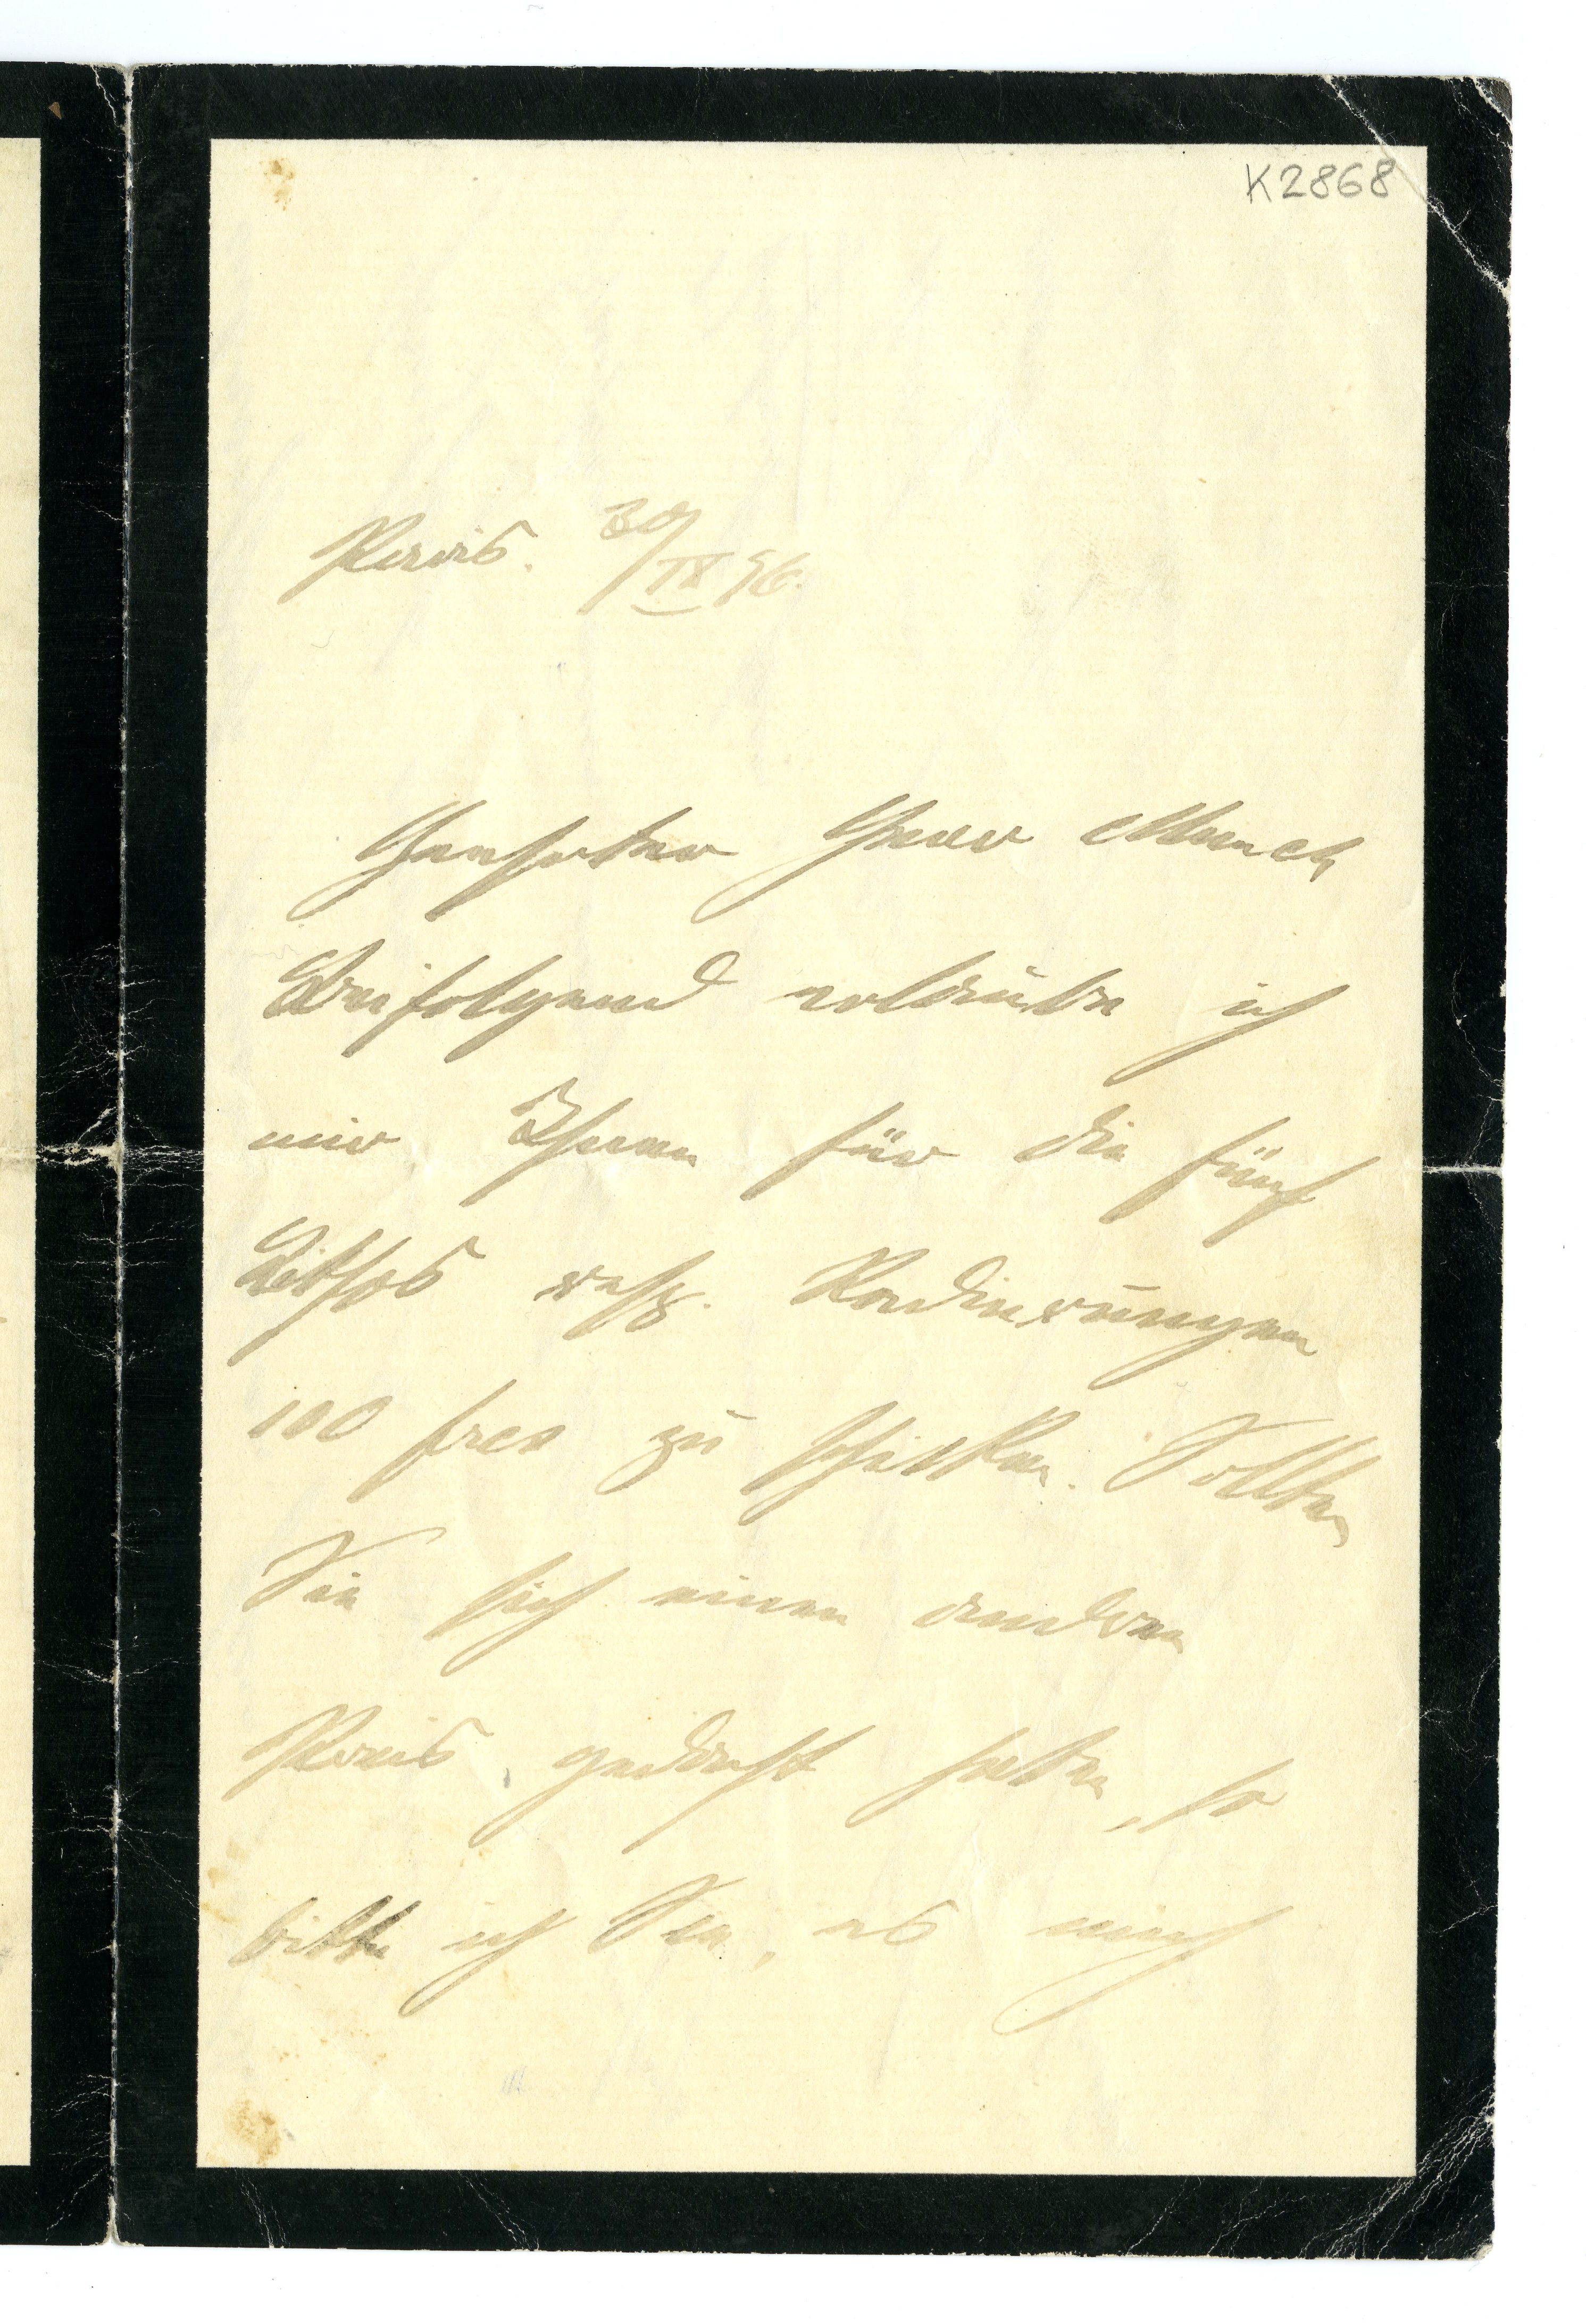 K2868
Paris. 30/IV 96.
Geehrter Herr Munch
Beifolgend erlaube ich
mir Ihnen für die fünf
Lithos resp. Radierungen
100 frcs zu schicken. Sollten
Sie sich einen andren
Preis gedacht haben, so
bitte ich Sie, es mich